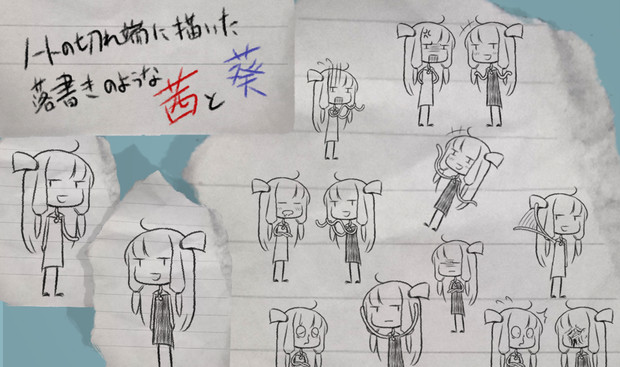 ノートの切れ端に描いた
落書きのような茜と葵